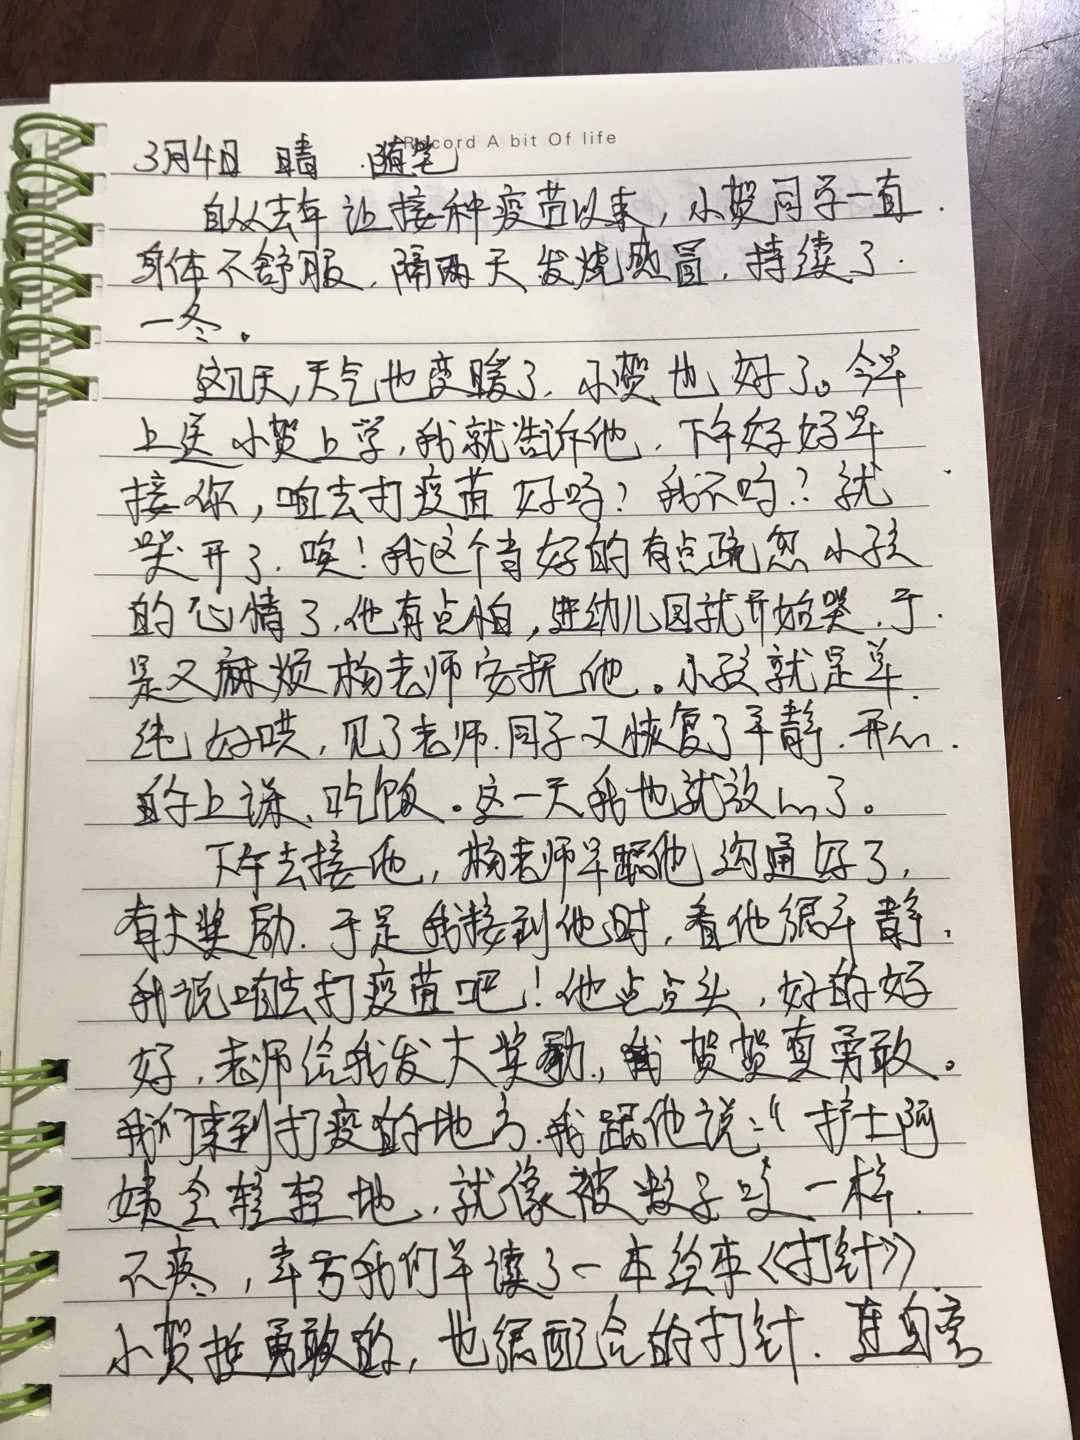 Record A bit Of life
3月4日 晴 随笔
自从去年让接种疫苗以来，小贺同学一直
身体不舒服，隔两天发烧感冒，持续了
一冬。
这几天，天气也变暖了，小贺也好了。今早
上送小贺上学，我就告诉他，下午好好早
接你，咱去打疫苗好吗？我不吗？就
哭开了，唉！我这个当妈的有点疏忽小孩
的心情了，他有点怕，进幼儿园就开始哭，于
是又麻烦杨老师安抚他。小孩就是单
纯好哄，见了老师、同子又恢复了平静，开心
的上课、吃饭。这一天我也就放心了。
下午去接他，杨老师早跟他沟通好了，
有大奖励，于是我接到他时，看他很平静，
我说咱去打疫苗吧！他点点头，好的好
好，老师给我发大奖励，我贺贺真勇敢。
我们来到打疫苗的地方，我跟他说：“护士阿
姨会轻轻地，就像被蚊子咬一样
不疼，幸亏我们早读了一本绘本《打针》
小贺挺勇敢的，也很配合的打针，连自